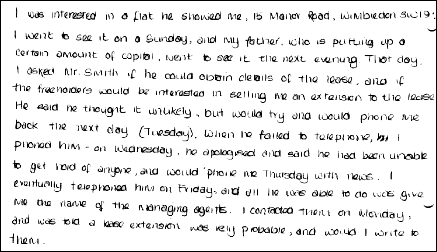 I was interested in a flat he showed me, 15 Manor Road, Wimbledon SW19.
I went to see it on a Sunday, and my father, who is putting up a
certain amount of capital, went to see it the next evening. That day,
I asked Mr. Smith if he could obtain details of the lease, and if
the freeholders would be interested in selling me an extension to the lease
He said he thought it unlikely, but would try and would phone me
back the next day (Tuesday). When he failed to telephone, I
phoned him - on Wednesday, he apologised and said he had been unable
to get hold of anyone, and would 'phone me Thursday with news. I
eventually telephoned him on Friday, and all he was able to do was give
me the name of the managing agents. I contacted them on Monday,
and was told a lease extension was very probable, and would I write to
them.